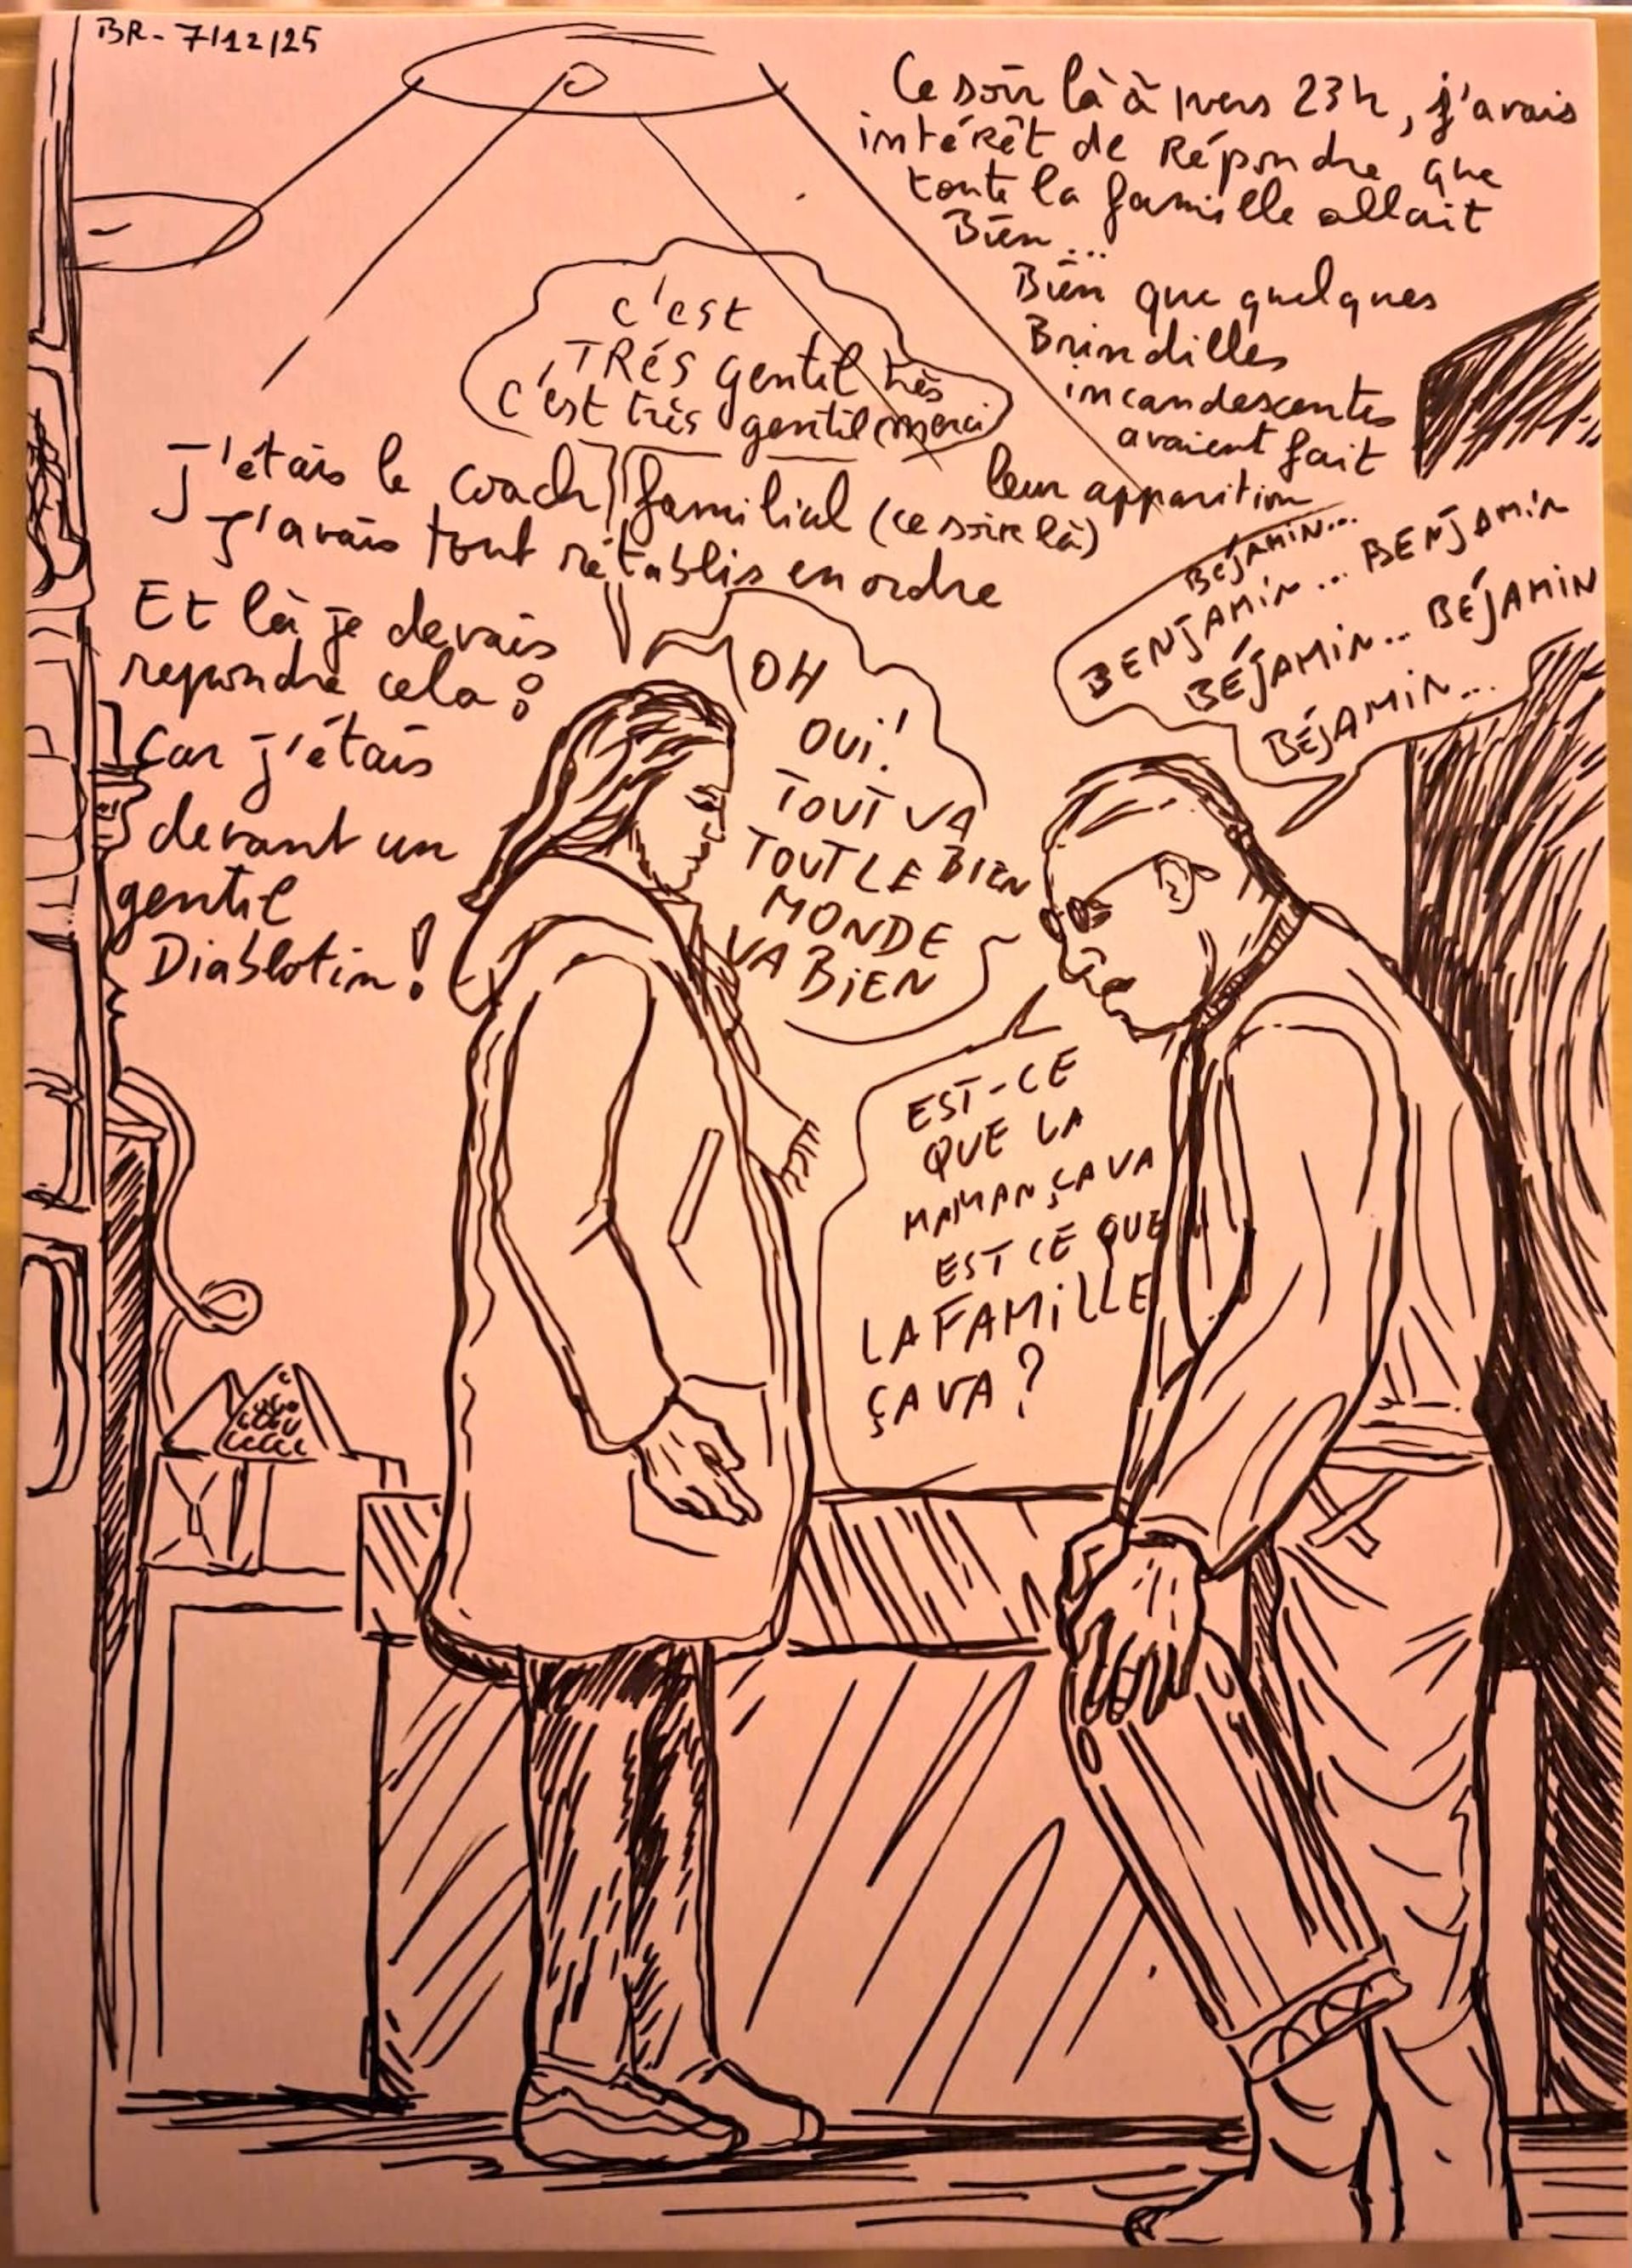 BR - 7/12/25
Ce soir là à vers 23h, j'avais
intérêt de Répondre que
toute la famille allait
Bien...
Bien que quelques
Brindilles
incandescentes
avaient fait
leur apparition
c'est
TRÉS gentil très
c'est très gentil merci
J'étais le coach familial (ce soir là)
J'avais tout rétablis en ordre
Et là je devais
repondre cela :
Car j'étais
devant un
gentil
Diablotin !
BÉJAMIN...
BENJAMIN... BENJAMIN
BÉJAMIN... BÉJAMIN
BÉJAMIN...
OH
OUI!
TOUT VA
BIEN
TOUT LE
MONDE
VA BIEN
EST-CE
QUE LA
MAMAN ÇA VA
EST CE QUE
LA FAMILLE
ÇA VA ?